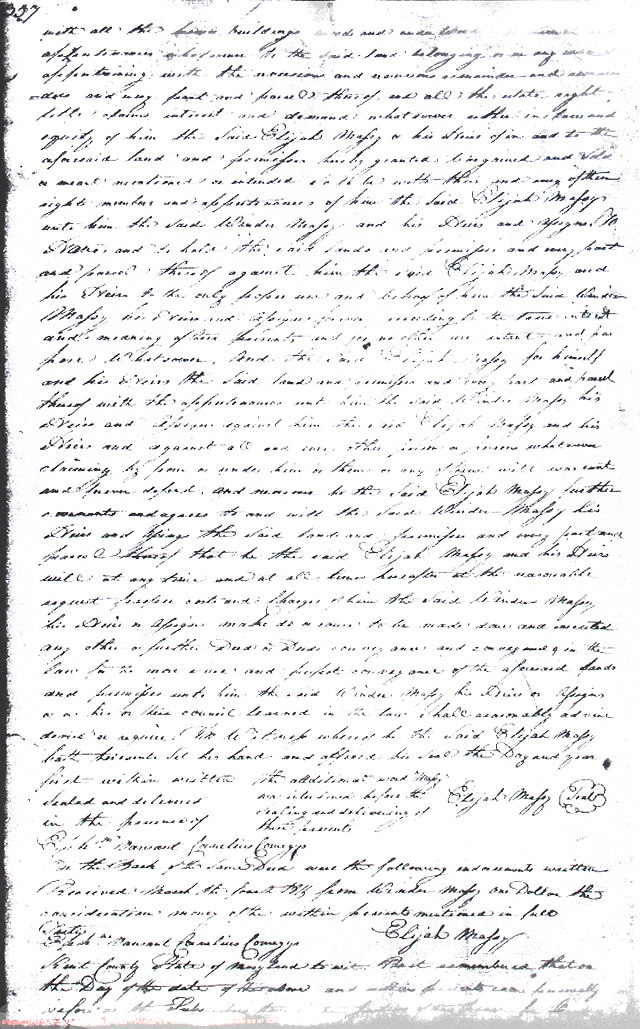 337
with all the houses buildings woods and under wood and
appurtenances whatsoever to the said land belonging or in any wise
appertaining with the reversion and reversions remainder and remain
ders and every part and parcel thereof and all the estate right
title claims interest and demand whatsoever either in law and
equity of him the Said Elijah Massy or his Heirs of in and to the
aforesaid land and premises hereby granted bargained and Sold
or meant mentioned or intended so to be with their and every of their
rights members and appurtenances of him the Said Elijah Massy
unto him the Said Winder Massy and his Heirs and Assigns To
Have and to hold the said lands and premises and every part
and parcel thereof against him the said Elijah Massy and
his Heirs to the only proper use and behoof of him the Said Winder
Massy his Heirs and Assigns forever according to the true intent
and meaning of these presents and for no other use intent and pur
pose Whatsoever, And the Said Elijah Massy for himself
and his Heirs the Said land and premises and every part and parcel
thereof with the appurtenances unto him the said Winder Massy his
Heirs and Assigns against him the said Elijah Massy and his
Heirs and against all and every other person or persons whatsoever
claiming by from or under him or them or any of them will warrant
and forever defend, and moreover he the Said Elijah Massy further
covenants and agrees to and with the Said Winder Massy his
Heirs and Assigns the Said lands and premises and every part and
parcel thereof that he the said Elijah Massy and his Heirs
will at any time and at all times hereafter at the reasonable
request proper costs and Charges of him the Said Winder Massy
his Heirs or Assigns make do or cause to be made done and executed
any other or further Deed or Deeds conveyance and conveyances in the
law for the more sure and perfect conveyance of the aforesaid lands
and premises unto him the said Winder Massy his Heirs or Assigns
as or his or their council learned in the law shall reasonably advise
devise or require In Witness whereof he the Said Elijah Massy
hath hereunto Set his hand and affixed his Seal the Day and year
first within written
Sealed and delivered
in the presence of
the additional word Massy
was interlined before the
Sealing and delivering of
these presents
Elijah Massy Seal
Cornelius Comegys
On the Back of the Same Deed were the following endorsements written
Received March the from Winder Massy one Dollar the
consideration money of the within presents mentioned in full
Teste
Cornelius Comegys
Elijah Massy
Kent County State of Maryland to wit Be it remembered that on
the Day of the date of the above and within personally
before